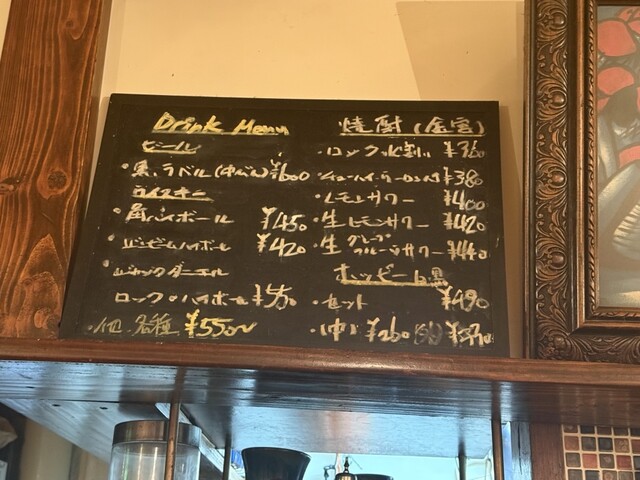 Drink Menu
ビール
・黒ラベル(中びん) ¥600
ウイスキー
・角ハイボール ¥450
・ジンビームハイボール ¥420
・ジャックダニエル
ロック・ハイボール ¥550
・他 各種 ¥550〜
焼酎(金宮)
・ロック 水割り ¥360
・チューハイ・ウーロンハイ ¥380
・レモンサワー ¥400
・生レモンサワー ¥420
・生グレープフルーツサワー ¥440
ホッピー 白 黒
・セット ¥490
・(中) ¥260 (外)